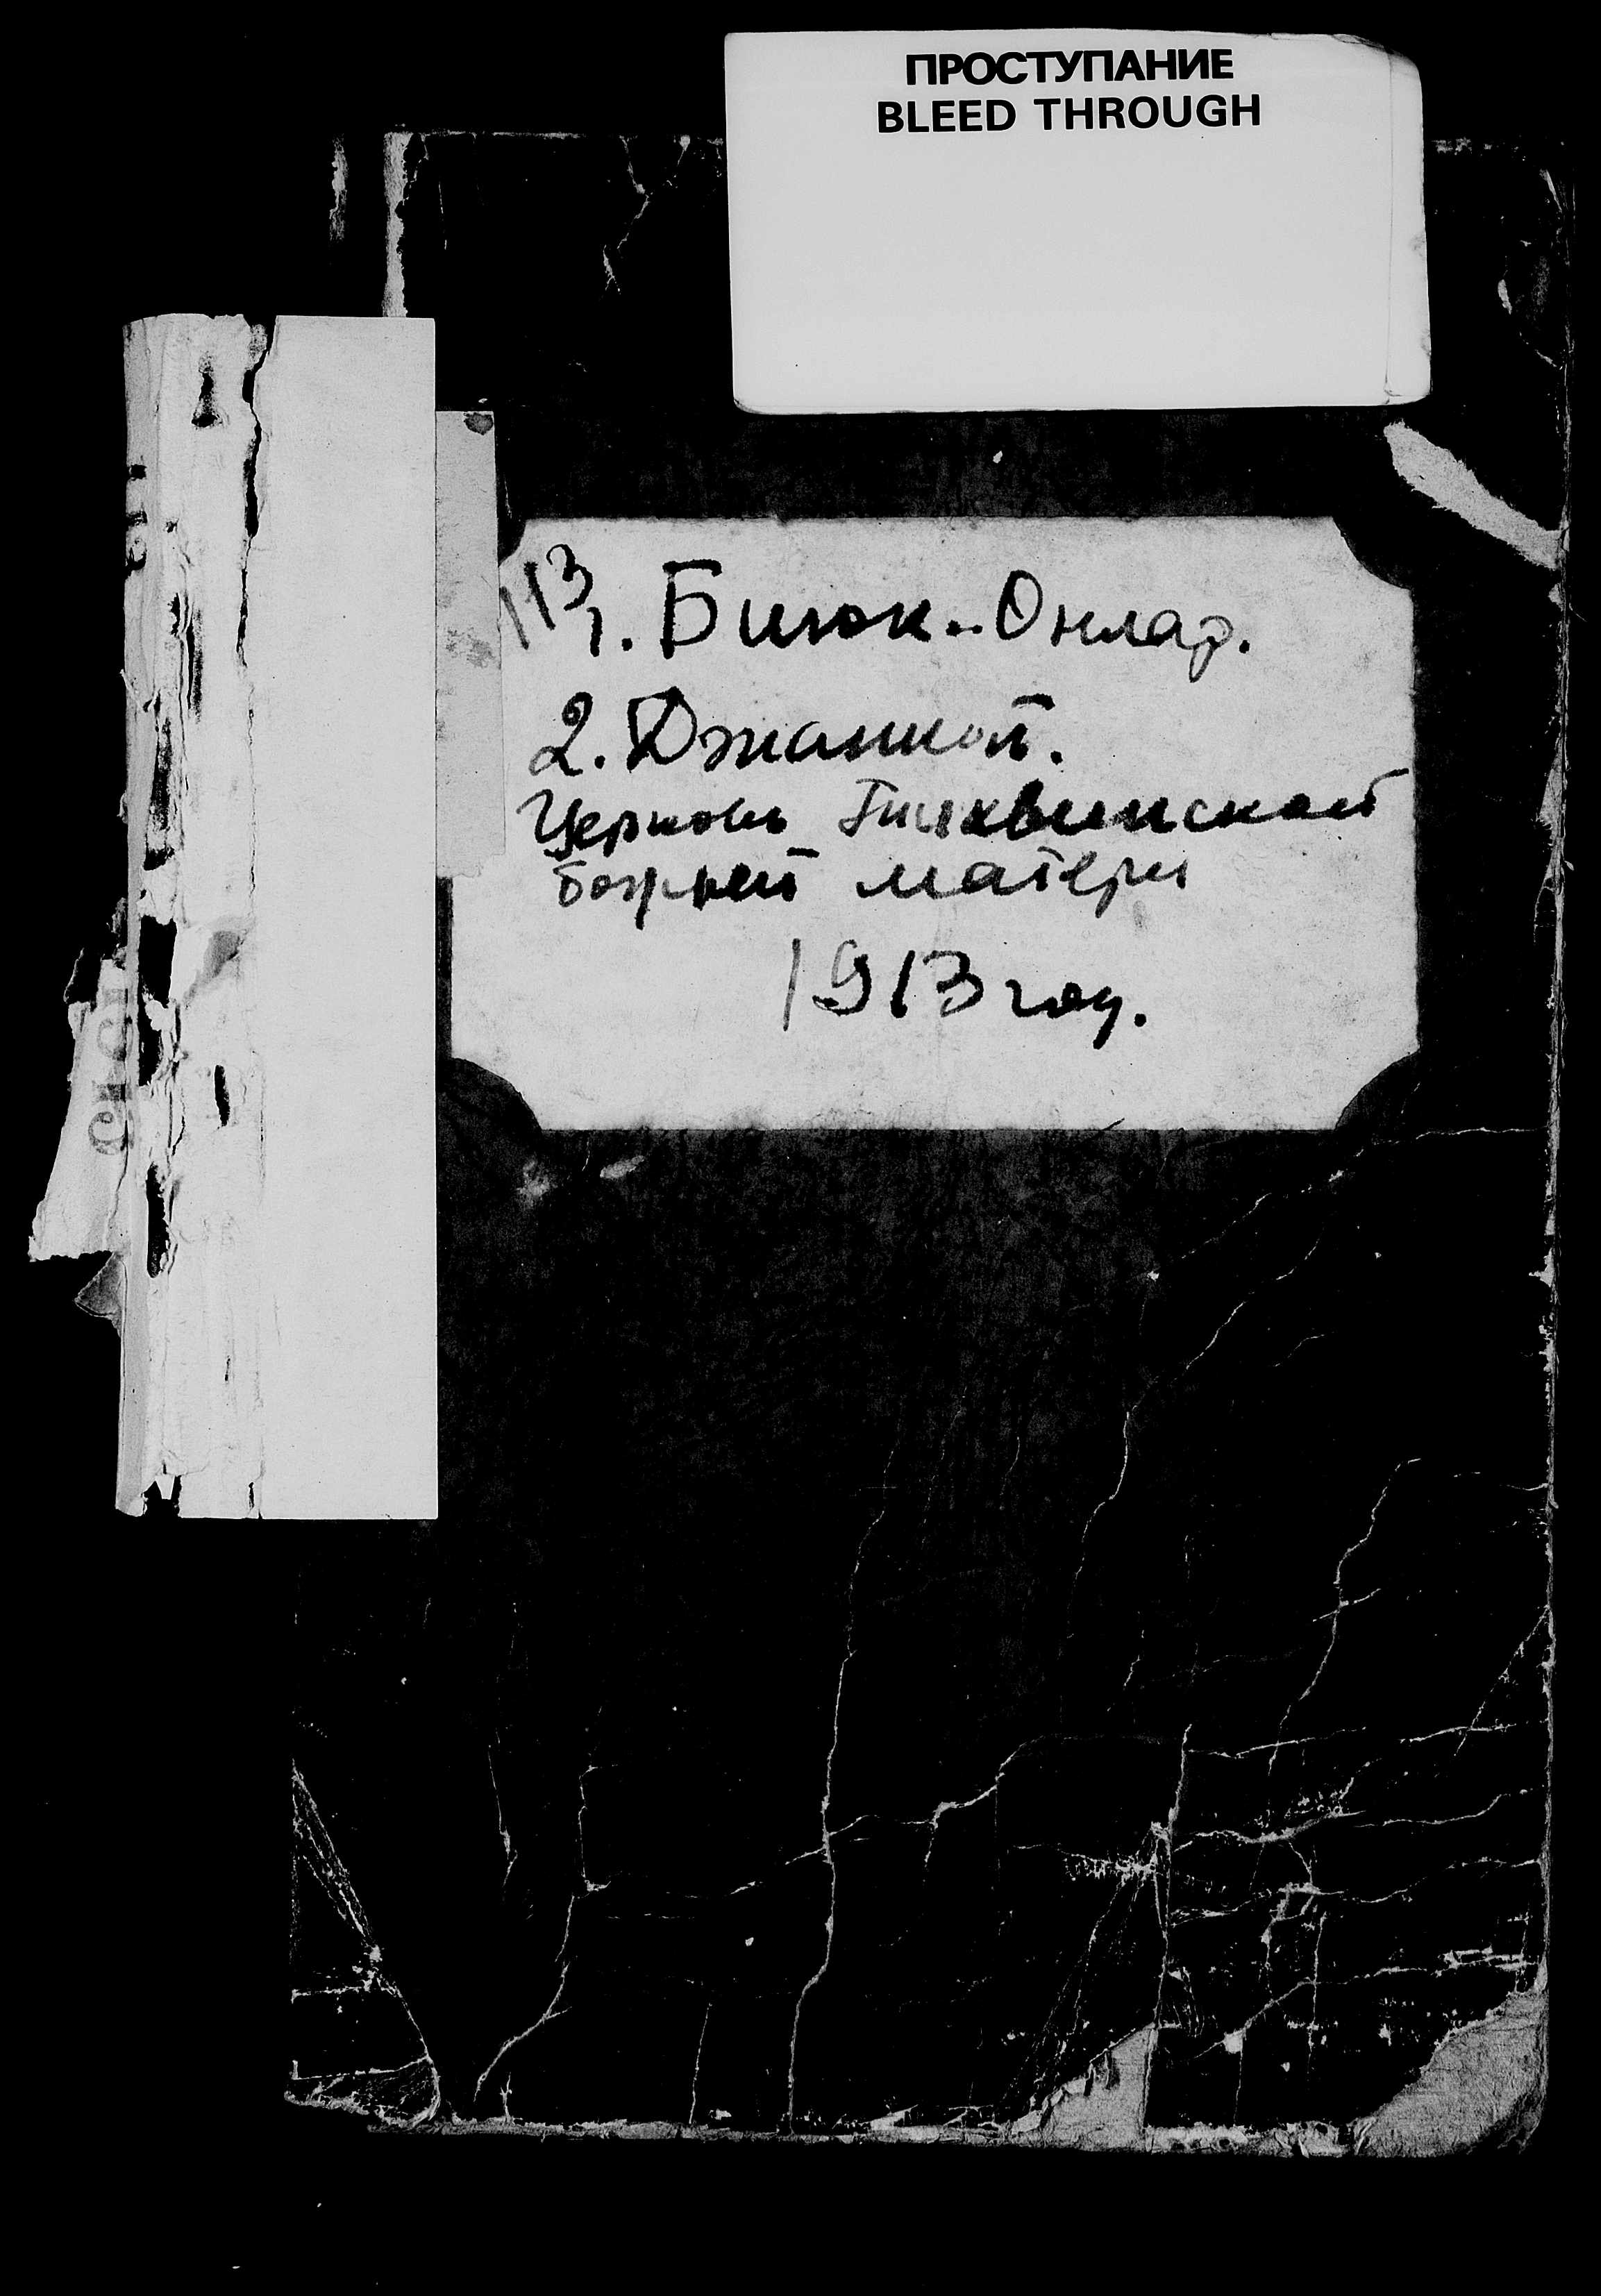 ПРОСТУПАНИЕ
BLEED THROUGH
113
1. Биюк-Онлар.
2. Джанкой.
Церковь Тихвинской
Божьей матери
1913 год.